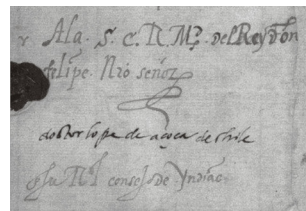 Ala. S. C. R. Mg. del Rey don
felipe. Nro señor
doctor lope de açoca de chile
consejo de Yndias